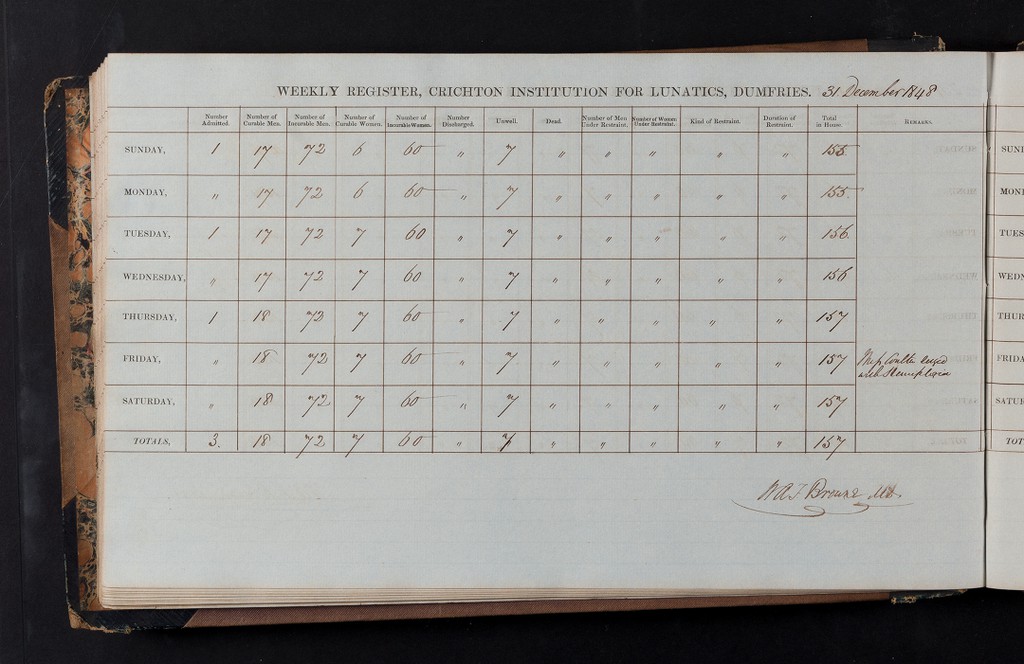 WEEKLY REGISTER, CRICHTON INSTITUTION FOR LUNATICS, DUMFRIES. 31 December 1848
Number Admitted. Number of Curable Men. Number of Incurable Men. Number of Curable Women. Number of Incurable Women. Number Discharged. Unwell. Dead. Number of Men Under Restraint. Number of Women Under Restraint. Kind of Restraint. Duration of Restraint. Total in House. REMARKS.
SUNDAY, 1 17 72 6 60 " 7 " " " " " 155.
MONDAY, " 17 72 6 60 " 7 " " " " " 155.
TUESDAY, 1 17 72 7 60 " 7 " " " " " 156.
WEDNESDAY, " 17 72 7 60 " 7 " " " " " 156
THURSDAY, 1 18 72 7 60 " 7 " " " " " 157
FRIDAY, " 18 72 7 60 " 7 " " " " " 157 Miss
with Hemiplegia
SATURDAY, " 18 72 7 60 " 7 " " " " " 157
TOTALS, 3. 18 72 7 60 " 7 " " " " " 157
W A F Browne MD.
SUNI
MONI
TUES
WEDN
THUR
FRIDA
SATUR
TOT